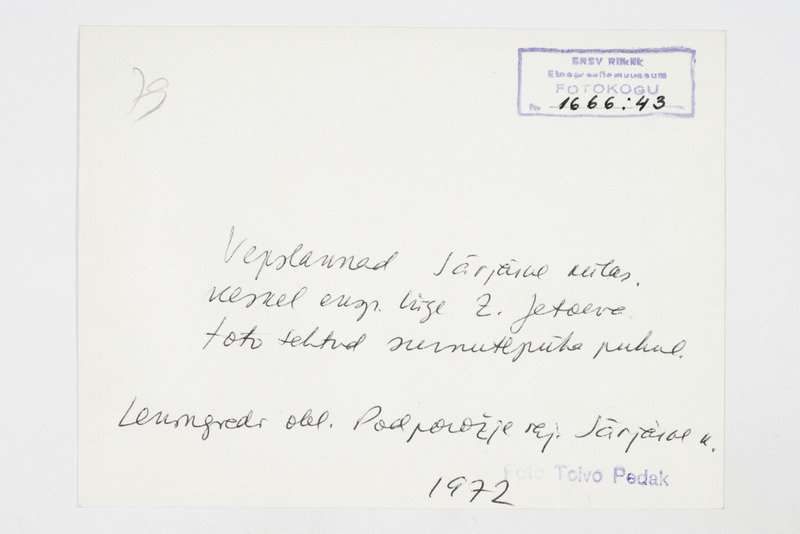 79
ENSV Riiklik
Etnograafiamuuseum
FOTOKOGU
No. 1666:43
Vepslannad Särjärve külas.
Keskel eksp. liige Z. Jetoeva
foto tehtud surnutepüha puhul.
Leningradi obl. Podporožje raj. Särjärve k.
Foto Toivo Pedak
1972